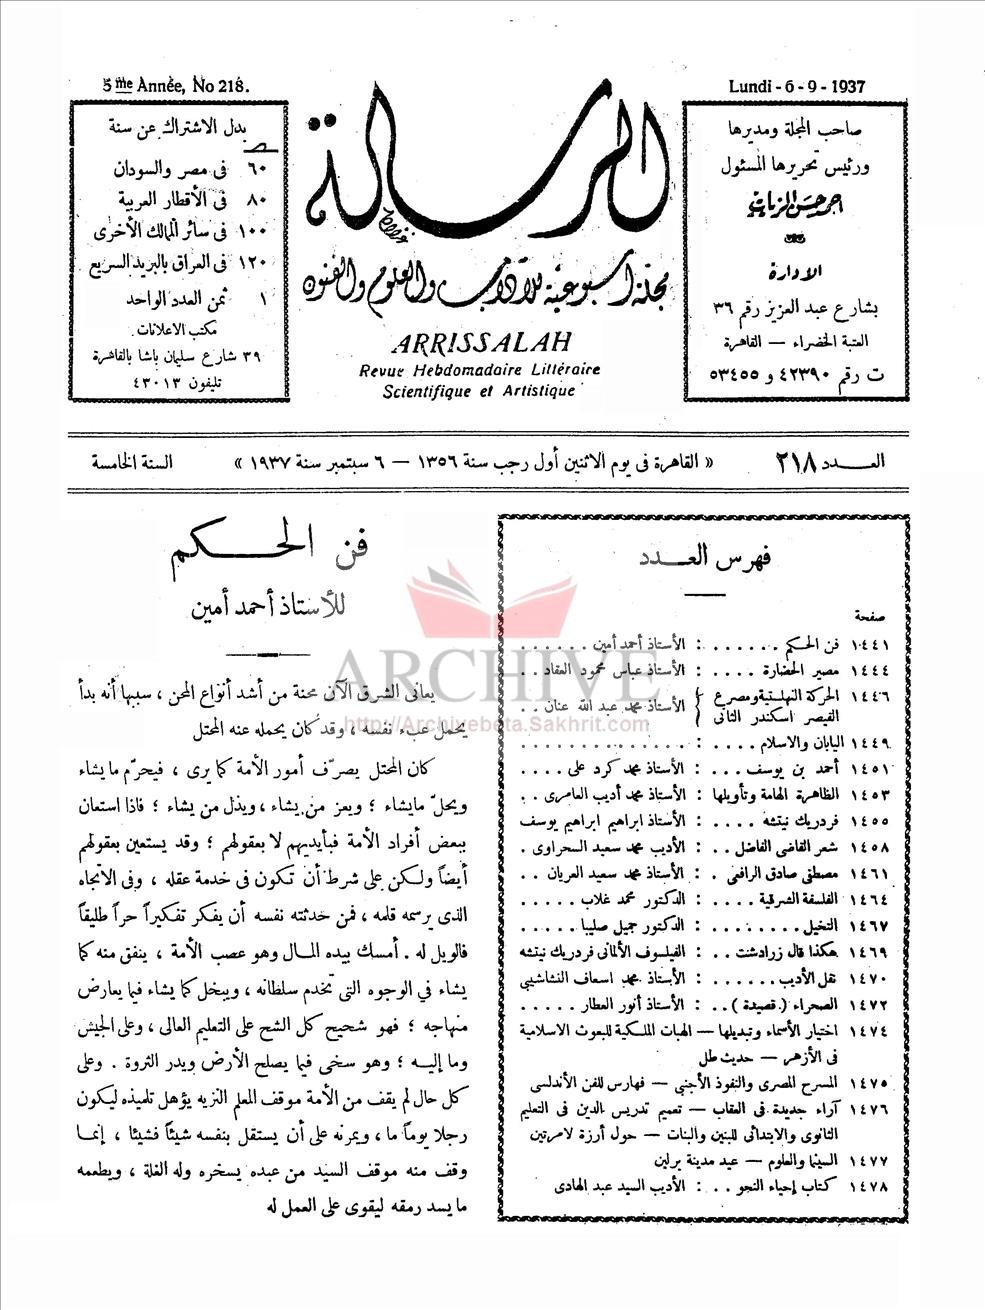 5me Année, No 218.
Lundi - 6 - 9 - 1937
صاحب المجلة ومديرها
ورئيس تحريرها المسئول
احمد حسن الزيات
الادارة
بشارع عبد العزيز رقم ٣٦
العتبة الخضراء — القاهرة
ت رقم ٤٢٣٩٠ و ٥٣٤٥٥
الرسالة
مجلة أسبوعية للآداب والعلوم والفنون
ARRISSALAH
Revue Hebdomadaire Littéraire
Scientifique et Artistique
بدل الاشتراك عن سنة
٦٠ فى مصر والسودان
٨٠ فى الأقطار العربية
١٠٠ فى سائر الممالك الأخرى
١٢٠ فى العراق بالبريد السريع
١ ثمن العدد الواحد
مكتب الاعلانات
٣٩ شارع سليمان باشا بالقاهرة
تليفون ٤٣٠١٣
العـــدد ٢١٨
« القاهرة فى يوم الاثنين أول رجب سنة ١٣٥٦ — ٦ سبتمبر سنة ١٩٣٧ »
السنة الخامسة
فهرس العـــدد
صفحة
١٤٤١ فن الحكم . . . . . . : الأستاذ أحمد أمين . . . . . .
١٤٤٤ مصير الحضارة . . . . : الأستاذ عباس محمود العقاد . .
١٤٤٦ الحركة النهلستية ومصرع القيصر اسكندر الثانى } الأستاذ محمد عبد الله عنان . .
١٤٤٩ اليابان والاسلام . . . . : . . . . . . . . . . . . .
١٤٥١ أحمد بن يوسف . . . : الأستاذ محمد كرد على . . . .
١٤٥٣ الظاهرة الهامة وتأويلها : الأستاذ محمد أديب العامرى . .
١٤٥٥ فردريك نيتشه . . . . : الأستاذ ابراهيم ابراهيم يوسف
١٤٥٨ شعر القاضى الفاضل . . : الأديب محمد سعيد السحراوى .
١٤٦١ مصطفى صادق الرافعى . : الأستاذ محمد سعيد العريان . .
١٤٦٤ الفلسفة الشرقية . . . . : الدكتور محمد غلاب . . . . .
١٤٦٧ التخيل . . . . . . . . : الدكتور جميل صليبا . . . . .
١٤٦٩ هكذا قال زرادشت . . : الفيلسوف الألمانى فردريك نيتشه
١٤٧٠ نقل الأديب . . . . . . : الأستاذ محمد اسعاف النشاشيبى
١٤٧٢ الصحراء ( قصيدة ) . . : الأستاذ أنور العطار . . . . .
١٤٧٤ اختيار الأسماء وتبديلها — الهبات الملكية للبعوث الاسلامية
فى الأزهر — حديث طل
١٤٧٥ المسرح المصرى والنفوذ الأجنبى — فهارس للفن الأندلسى
١٤٧٦ آراء جديدة فى العقاب — تعميم تدريس الدين فى التعليم
الثانوى والابتدائى للبنين والبنات — حول أرزة لامرتين
١٤٧٧ السينما والعلوم — عيد مدينة برلين
١٤٧٨ كتاب إحياء النحو . . : الأديب السيد عبد الهادى
فن الحـــكم
للأستاذ أحمد أمين
يعانى الشرق الآن محنة من أشد أنواع المحن ، سببها أنه بدأ
يحمل عبء نفسه ، وقد كان يحمله عنه المحتل
كان المحتل يصرّف أمور الأمة كما يرى ، فيحرّم ما يشاء
ويحلّ ما يشاء ؛ ويعز من يشاء ، ويذل من يشاء ؛ فاذا استعان
ببعض أفراد الأمة فبأيديهم لا بعقولهم ؛ وقد يستعين بعقولهم
أيضاً ولكن على شرط أن تكون فى خدمة عقله ، وفى الاتجاه
الذى يرسمه قلمه ، فمن حدثته نفسه أن يفكر تفكيراً حراً طليقاً
فالويل له . أمسك بيده المـال وهو عصب الأمة ، ينفق منه كما
يشاء في الوجوه التى تخدم سلطانه ، ويبخل كما يشاء فيما يعارض
منهاجه ؛ فهو شحيح كل الشح على التعليم العالى ، وعلى الجيش
وما إليـه ؛ وهو سخى فيما يصلح الأرض ويدر الثروة . وعلى
كل حال لم يقف من الأمة موقف المعلم النزيه يؤهل تلميذه ليكون
رجلا يوماً ما ، ويمرنه على أن يستقل بنفسه شيئاً فشيئا ، إنمـا
وقف منه موقف السيد من عبده يسخره وله الغلة ، ويطعمه
ما يسد رمقه ليقوى على العمل له
ARCHIVE
http://Archivebeta.Sakhrit.com